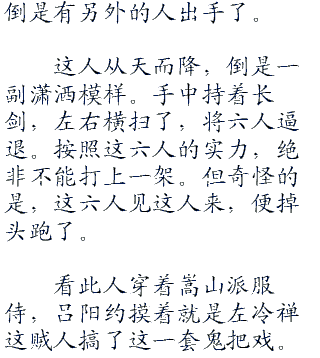 倒是有另外的人出手了。
这人从天而降，倒是一
副潇洒模样。手中持着长
剑，左右横扫了，将六人逼
退。按照这六人的实力，绝
非不能打上一架。但奇怪的
是，这六人见这人来，便掉
头跑了。
看此人穿着嵩山派服
侍，吕阳约摸着就是左冷禅
这贼人搞了这一套鬼把戏。